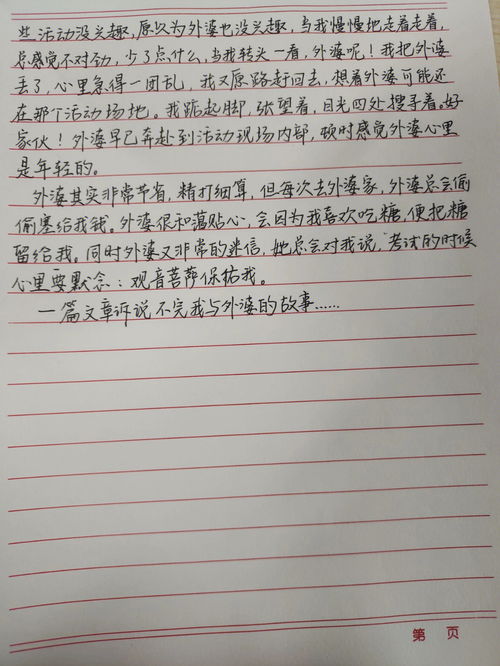 些活动没兴趣,原以为外婆也没兴趣,当我慢慢地走着走着,
总感觉不对劲,少了点什么,当我转头一看,外婆呢!我把外婆
丢了,心里急得一团乱,我又原路赶回去,想着外婆可能还
在那个活动场地。我踮起脚,张望着,目光四处搜寻着。好
家伙!外婆早已奔赴到活动现场内部,顿时感觉外婆心里
是年轻的。
外婆其实非常节省,精打细算,但每次去外婆家,外婆总会偷
偷塞给我钱。外婆很和蔼贴心,会因为我喜欢吃糖,便把糖
留给我。同时外婆又非常的迷信,她总会对我说,考试的时候
心里要默念:观音菩萨保祐我。
一篇文章诉说不完我与外婆的故事......
第 页